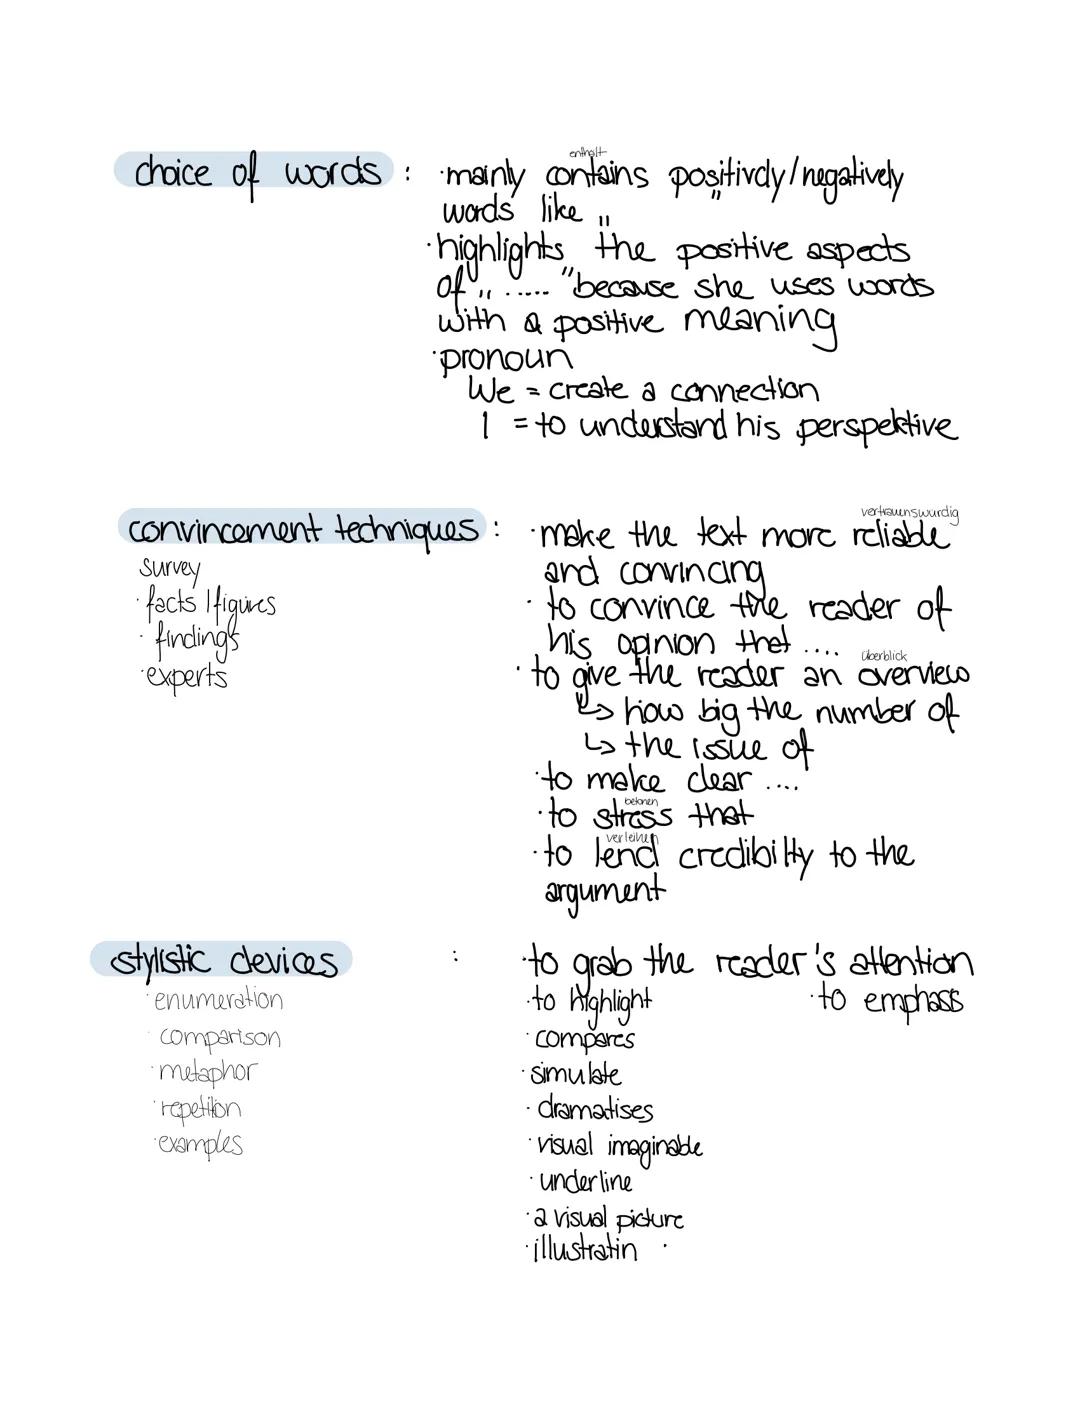 enthält
choice of words : ·mainly contains positively/negatively
words like „ "
·highlights the positive aspects
of „ ..... "because she uses words
with a positive meaning
·pronoun
We = create a connection
I = to understand his perspektive
vertrauenswürdig
convincement techniques : ·make the text more reliable
survey
and convincing
·facts / figures
·to convince the reader of
·findings
his opinion that ....
überblick
·experts
·to give the reader an overview
↳ how big the number of
↳ the issue of
·to make clear ....
betonen
·to stress that
verleihen
·to lend credibilty to the
argument
stylistic devices : ·to grab the reader's attention
·enumeration
·to highlight ·to emphass
·comparison
·compares
·metaphor
·simulate
·repetition
·dramatises
·examples
·visual imaginable
·underline
·a visual picture
·illustratin ·